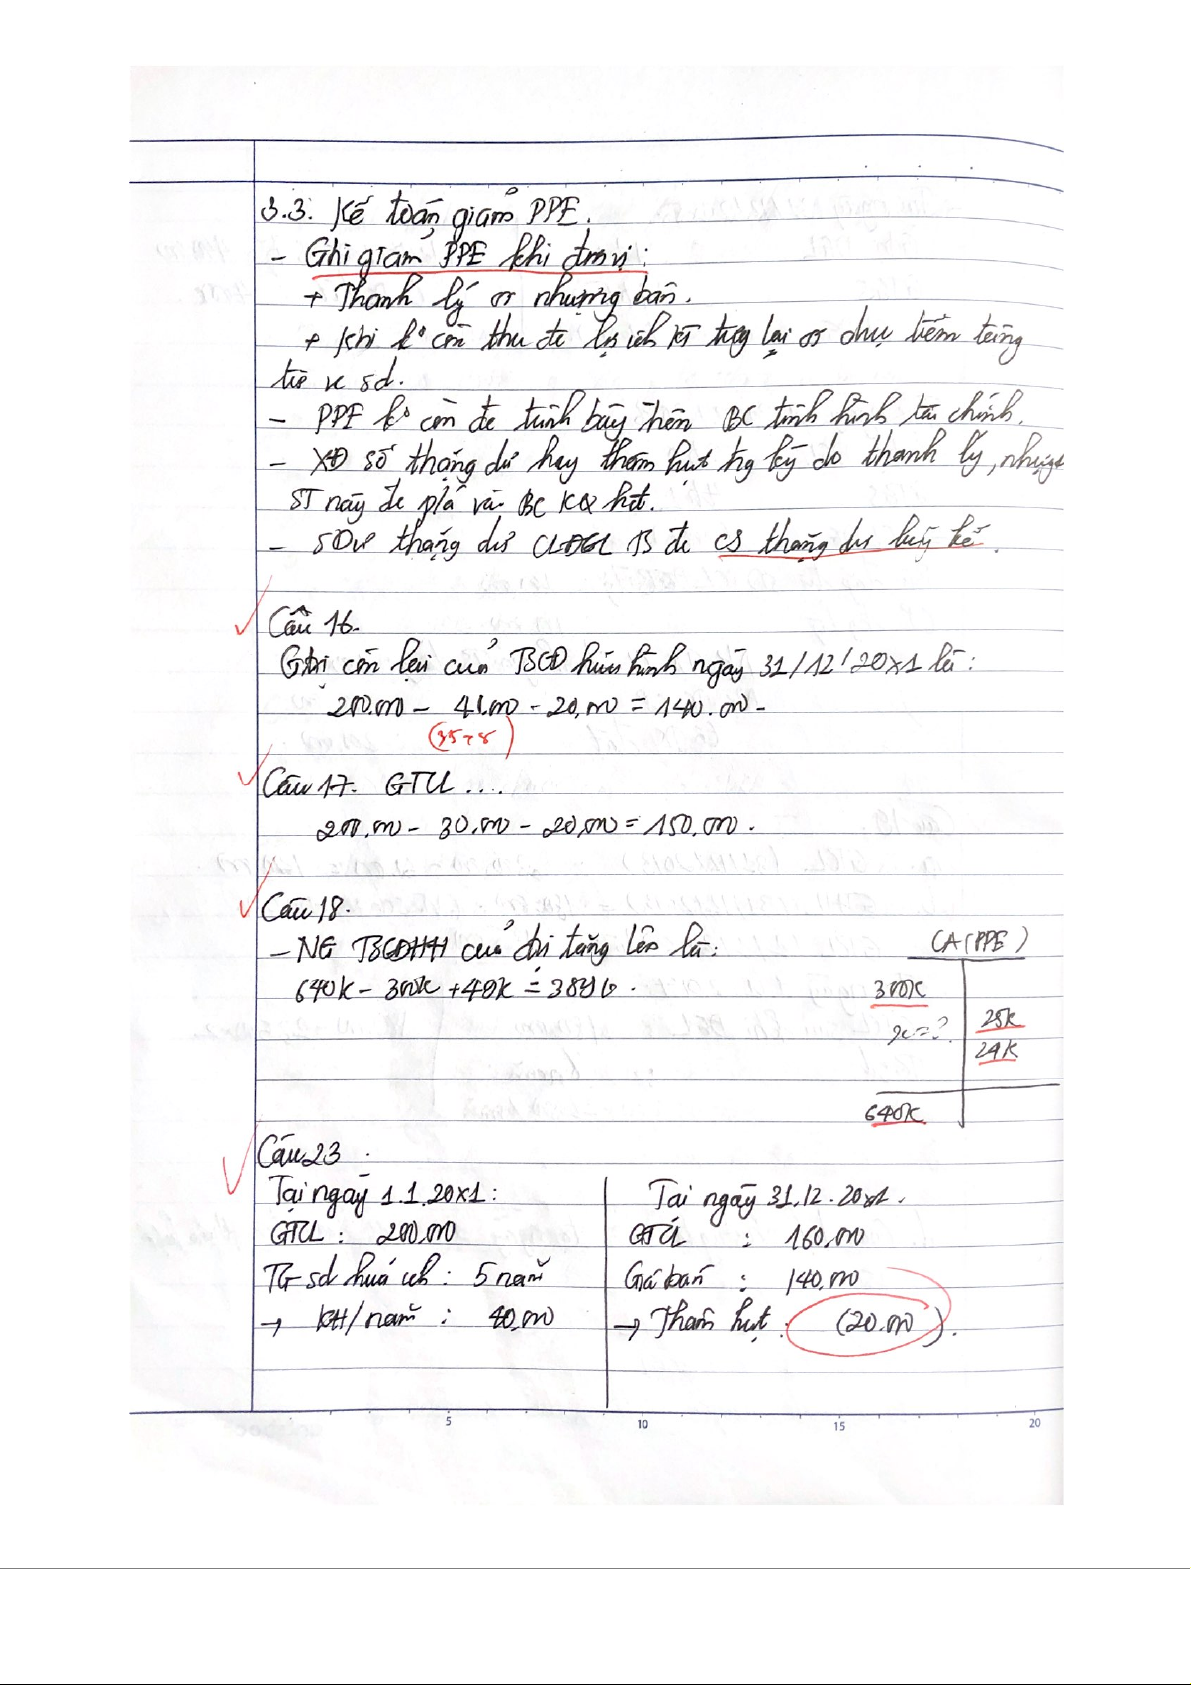 3.3. Kế toán giảm PPE.
- Ghi giảm PPE khi đơn vị:
+ Thanh lý or nhượng bán.
+ Khi ko còn thu đc lợi ích KT tương lai or dvụ tiềm tàng
từ vc sd.
- PPE ko còn đc trình bày trên BC tình hình tài chính.
- XĐ số thặng dư hay thâm hụt trg kỳ do thanh lý, nhượng
ST này đc p/á vào BC KQ hđ.
- SDư thặng dư CLĐGL TS đc CS thặng dư luỹ kế.
Câu 16.
Gtrị còn lại của TSCĐ hữu hình ngày 31/12/20x1 là:
200.000 - 40.000 - 20,000 = 140.000
(35+5)
Câu 17. GTCL ....
200.000 - 30.000 - 20,000 = 150,000.
Câu 18.
- NG TSCĐHH của đvị tăng lên là:
640k - 300k + 49k =
CA (PPE)
300k
x = ?
25k
24k
640k
Câu 23
Tại ngày 1.1.20x1:
GTCL : 200,000
TG sd hữu ích : 5 năm
→ KH/năm : 40,000
Tại ngày 31.12.20x1.
GTCL : 160,000
Giá bán : 140,000
→ Thâm hụt : (20.000).
5 10 15 20